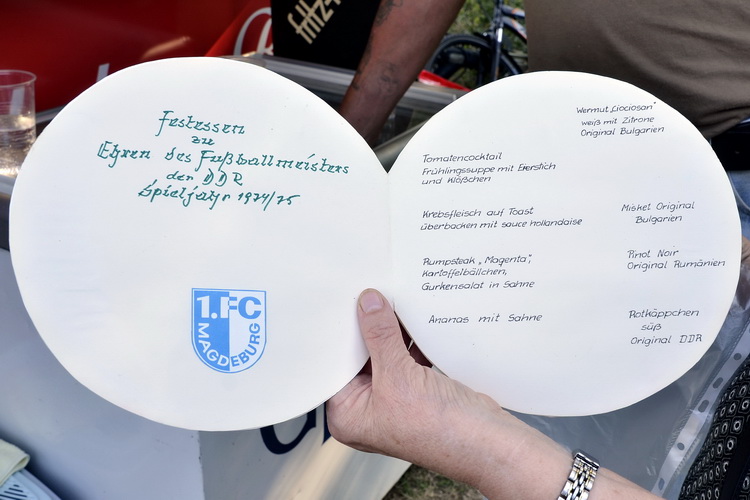 Festessen
zu
Ehren des Fußballmeisters
der DDR
Spieljahr 1974/75
1.FC
MAGDEBURG
Wermut „Ciociosan"
weiß mit Zitrone
Original Bulgarien
Tomatencocktail
Frühlingssuppe mit Eierstich
und Klößchen
Krebsfleisch auf Toast
überbacken mit sauce hollandaise
Misket Original
Bulgarien
Rumpsteak „Magenta",
Kartoffelbällchen,
Gurkensalat in Sahne
Pinot Noir
Original Rumänien
Ananas mit Sahne
Rotkäppchen
süß
Original DDR